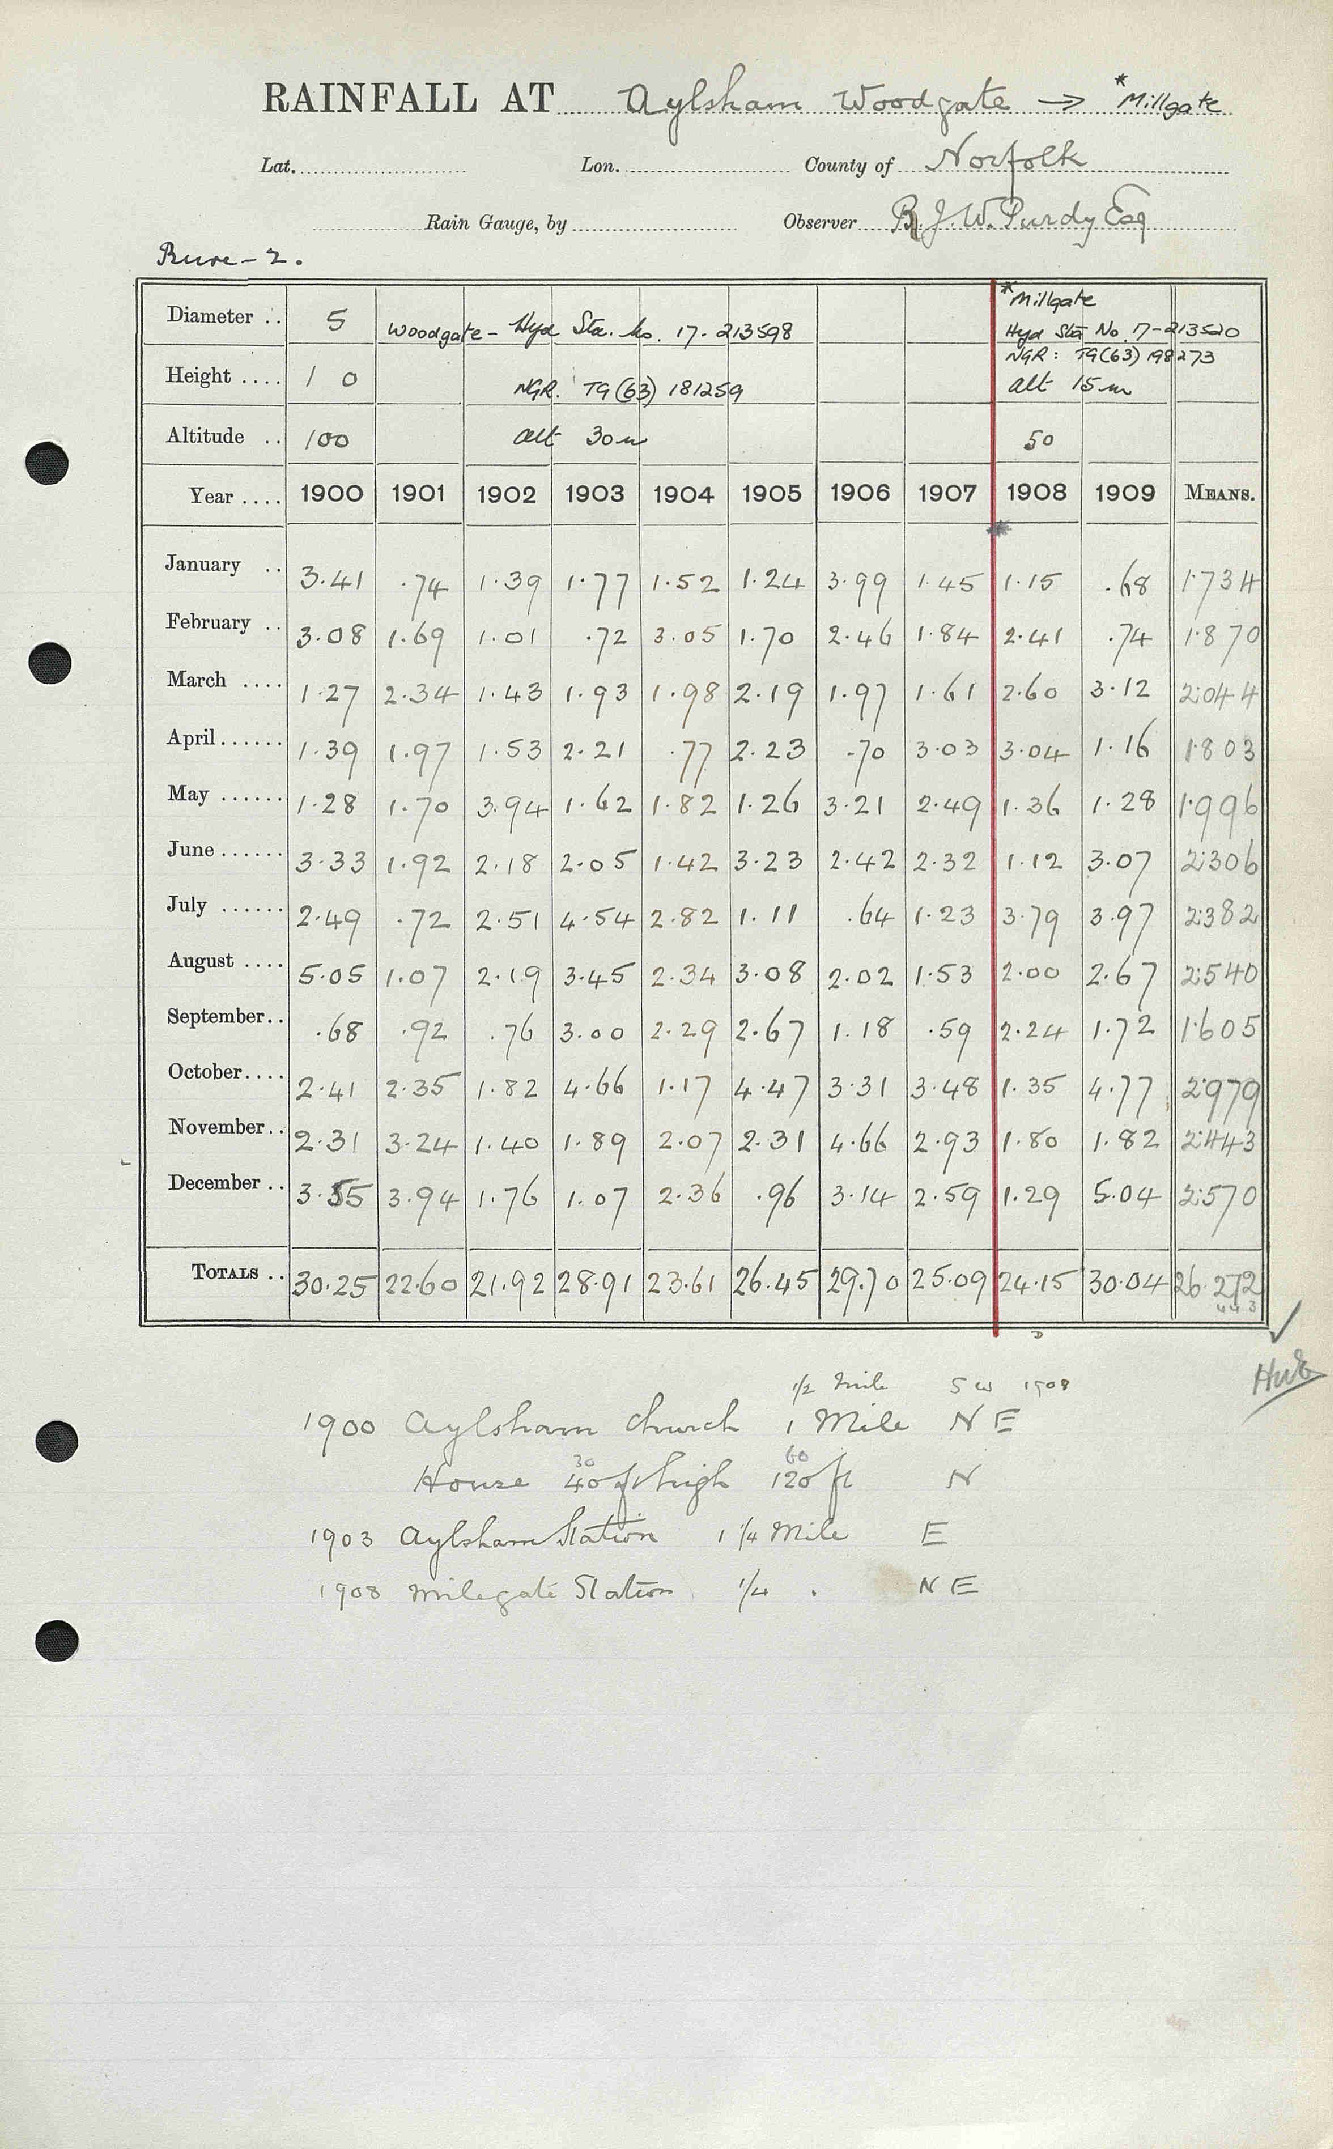 RAINFALL AT Aylsham Woodgate → *Millgate
Lat. Lon. County of Norfolk
Rain Gauge, by Observer B. J. W. Purdy Esq
Bure - 2.
*Millgate
Diameter .. 5 Woodgate - Hyd Sta. No. 17-213598 Hyd Sta No. 17-213520
NGR: TG(63) 198273
Height .... 1 0 NGR. TG (63) 181259 alt 15m
Altitude .. 100 alt 30m 50
Year .... 1900 1901 1902 1903 1904 1905 1906 1907 1908 1909 MEANS.
January .. 3.41 .74 1.39 1.77 1.52 1.24 3.99 1.45 1.15 .68 1.734
February .. 3.08 1.69 1.01 .72 3.05 1.70 2.46 1.84 2.41 .74 1.870
March .... 1.27 2.34 1.43 1.93 1.98 2.19 1.97 1.61 2.60 3.12 2.044
April ...... 1.39 1.97 1.53 2.21 .77 2.23 .70 3.03 3.04 1.16 1.803
May ...... 1.28 1.70 3.94 1.62 1.82 1.26 3.21 2.49 1.36 1.28 1.996
June ...... 3.33 1.92 2.18 2.05 1.42 3.23 2.42 2.32 1.12 3.07 2.306
July ...... 2.49 .72 2.51 4.54 2.82 1.11 .64 1.23 3.79 3.97 2.382
August .... 5.05 1.07 2.19 3.45 2.34 3.08 2.02 1.53 2.00 2.67 2.540
September .. .68 .92 .76 3.00 2.29 2.67 1.18 .59 2.24 1.72 1.605
October .... 2.41 2.35 1.82 4.66 1.17 4.47 3.31 3.48 1.35 4.77 2.979
November .. 2.31 3.24 1.40 1.89 2.07 2.31 4.66 2.93 1.80 1.82 2.443
December .. 3.55 3.94 1.76 1.07 2.36 .96 3.14 2.59 1.29 5.04 2.570
TOTALS .. 30.25 22.60 21.92 28.91 23.61 26.45 29.70 25.09 24.15 30.04 26.272
443
1/2 Mile SW 1908
1900 Aylsham Church 1 Mile NE
30 60
House 40 ft high 120 ft N
1903 Aylsham Station 1 1/4 Mile E
1908 Millgate Station 1/4 . NE